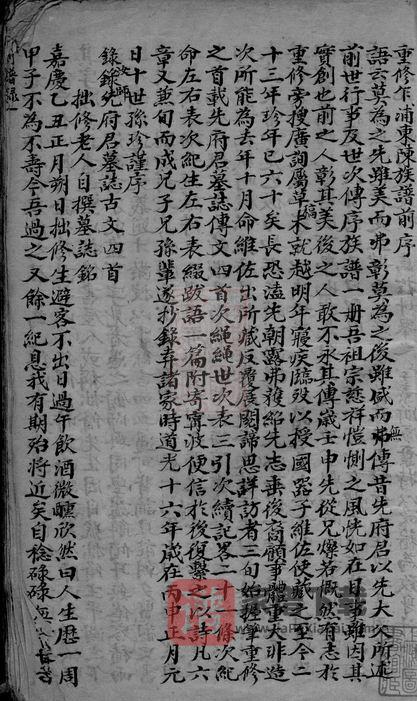 重修乍浦東陳族譜前序
語云莫為之先雖美而弗彰莫為之後雖盛而弗傳昔先府君以先大人所述
無
前世行事及世次傳序族譜一冊吾祖宗慈祥愷惻之風恍如在目事雖因其
實創也前之人彰其美後之人敢不永其傳歲壬申先從兄爃若慨然有志於
重修旁搜廣詢屬草未就越明年寢疾臨歿以授國器子維佐使藏之至今二
稿
十三年珍年已六十矣長恐溘先朝露弗獲紹先志垂後裔顧事體重大非造
次所能為去年十月命維佐出所藏反覆展閱諦思詳訪者三旬始握筆重修
之首載先府君墓誌傳文四首次繩繩世次表三引次續記畧二十一條次紀
命左右表次紀生左右表綴跋語一篇附寄齋波便信於後復繫之以詩凡六
章又兼旬而成兄子兄孫輩遂抄錄弆諸家時道光十六年歲在丙申正月元
日十世孫珍謹序
錄先府君墓誌古文四首
拙修老人自撰墓誌銘
嘉慶乙丑正月朔日拙修生避客不出日過午飲酒微醺欣然曰人生歷一周
甲子不為不壽今吾過之又餘一紀息我有期殆將近矣自稔碌碌無